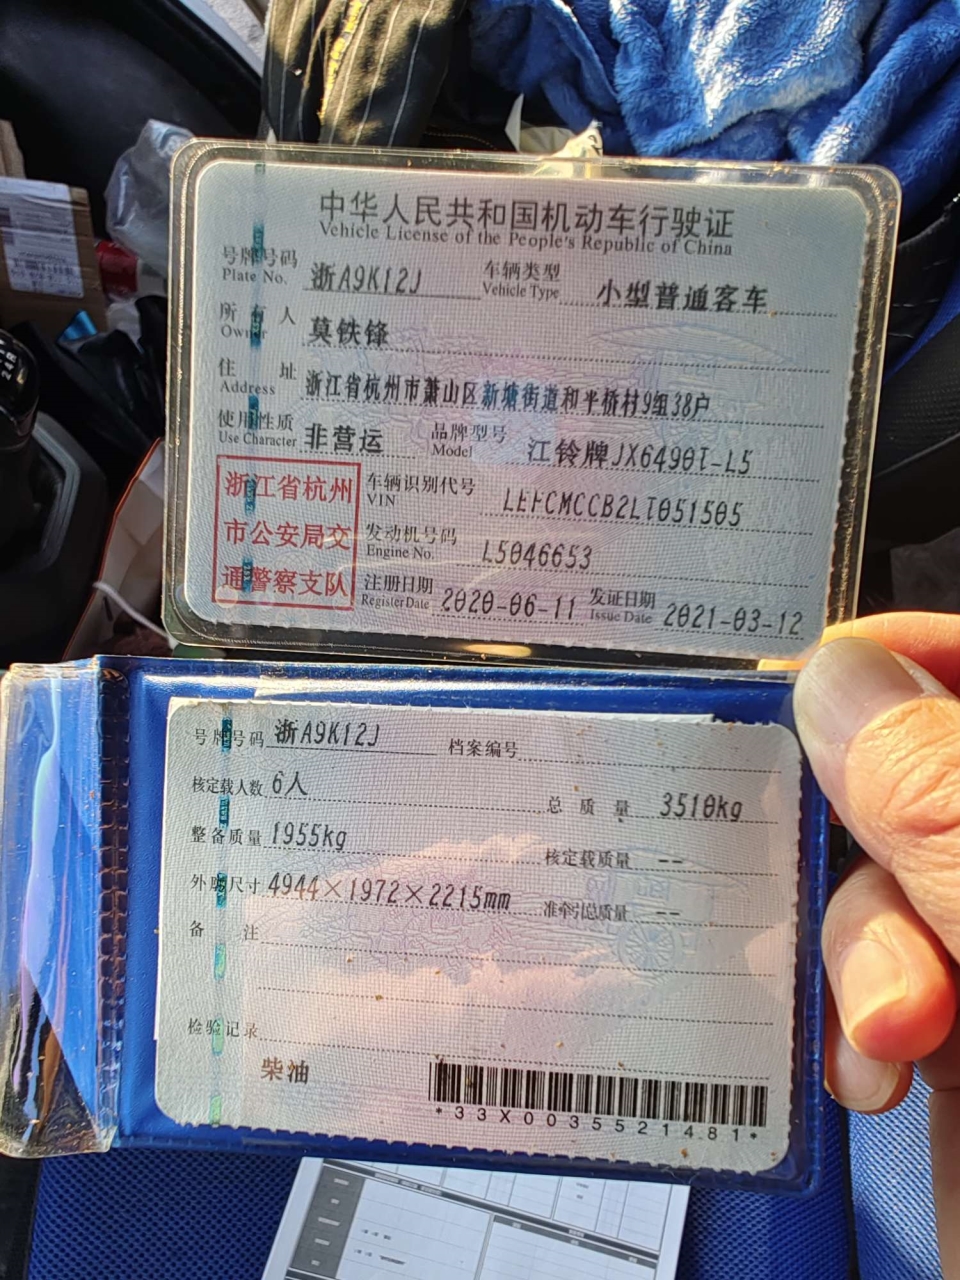 中华人民共和国机动车行驶证
Vehicle License of the People's Republic of China
号牌号码 浙A9K12J 车辆类型 小型普通客车
Plate No. Vehicle Type
所有人 莫铁锋
Owner
住址 浙江省杭州市萧山区新塘街道和平桥村9组38户
Address
使用性质 非营运 品牌型号 江铃牌JX6490T-L5
Use Character Model
浙江省杭州
市公安局交
通警察支队
车辆识别代号 LEFCMCCB2LT051505
VIN
发动机号码 L5046653
Engine No.
注册日期 2020-06-11 发证日期 2021-03-12
Register Date Issue Date
号牌号码 浙A9K12J 档案编号
核定载人数 6人 总质量 3510kg
整备质量 1955kg 核定载质量 --
外廓尺寸 4944×1972×2215mm 准牵引总质量 --
备注
检验记录
柴油
*33X0035521481*